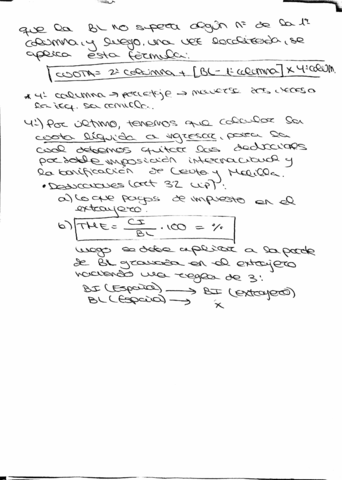 que la BL no supera algún nº de la 1ª
columna, y luego, una vez localizada, se
aplica esta fórmula:
CUOTA = 2ª columna + [BL - 1ª columna] x 4ª colum.
* 4ª columna → porcentaje →
4º) Por último, tenemos que calcular la
cuota líquida a ingresar, para la
cual debemos quitar las deducciones
por doble imposición internacional y
la bonificación de Ceuta y Melilla.
• Deducciones (art 32 LIP):
a) Lo que pagas de impuesto en el
extranjero.
b) TME = CI / BL · 100 = %
luego se debe aplicar a la parte
de BL gravada en el extranjero
haciendo una regla de 3:
BI (España) → BI (extranjero)
BL (España) → x